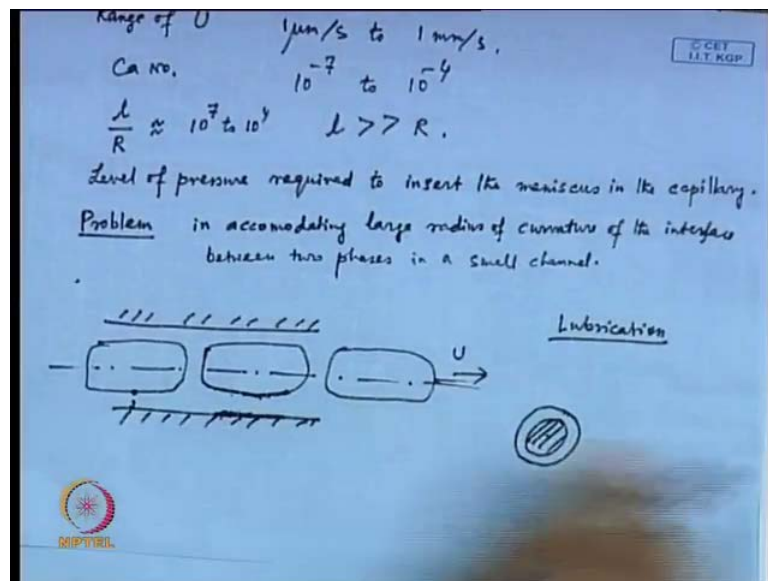 Range of U 1 μm/s to 1 mm/s.
© CET
I.I.T. KGP
Ca No. 10⁻⁷ to 10⁻⁴
l/R ≈ 10⁷ to 10⁴ l >> R.
Level of pressure required to insert the meniscus in the capillary.
Problem in accomodating large radius of curvature of the interface
between two phases in a small channel.
Lubrication
U
NPTEL